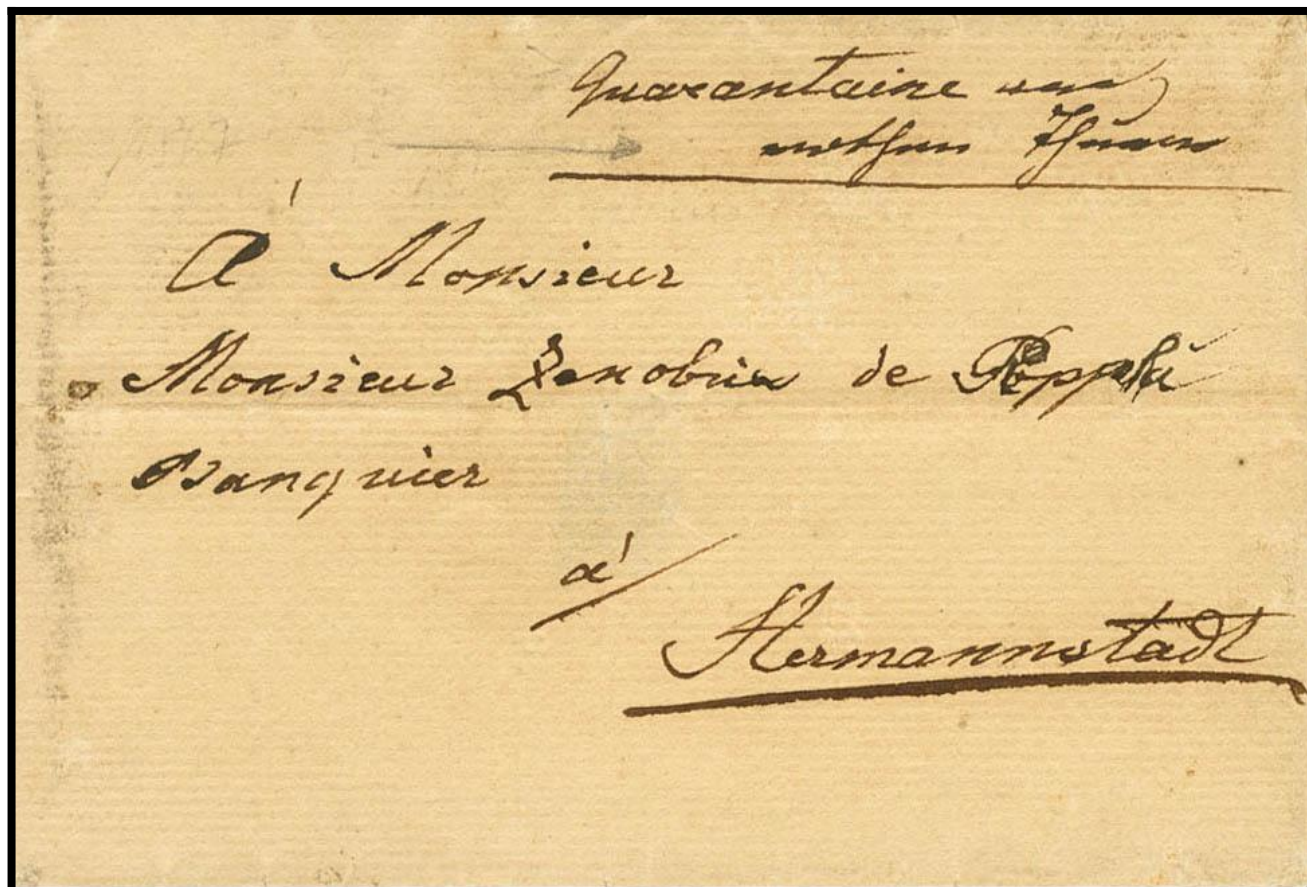 Quarantaine
rothen Thurm
À Monsieur
Monsieur Zenobius de Popp
Banquier
à
Hermannstadt